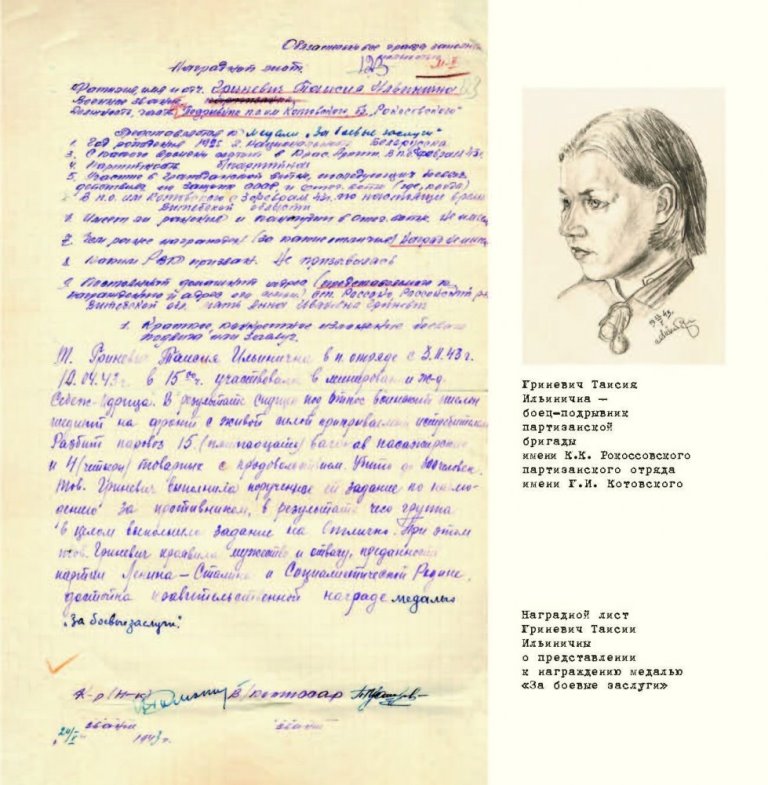 Наградной лист.
123
Фамилия, имя и отч. Гриневич Таисия Ильинична
Военное звание партизанка
Должность, часть подрывник п.о им Котовского бр. "Рокосовского"
Представляется к медали "За боевые заслуги"
1. Год рождения 1925 2. Национальность Белоруска
3. С какого времени состоит в Крас. Армии. В п.о с февраля 43 г.
4. Партийность
5. Участие в гражданской войне, последующих боевых
действиях по защите СССР и отеч. войне (где, когда)
В п.о. им Котовского с февраля 43 г. по настоящее время
Витебской области
6. Имеет ли ранения и контузии в отеч. войне. Не имеет
7. Чем ранее награжден (за какие отличия) наград не имеет
8. Каким РВК призван. Не призывалась
9. Постоянный домашний адрес (представляемого к
награждению и адрес его семьи) ст. Россоны, Россонский р-н
Витебской обл. мать Анна Ивановна Гриневич
1. Краткое конкретное изложение боевого
подвига или заслуг.
Т. Гриневич Таисия Ильинична в п. отряде с 3.II.43 г.
12.04.43 г. в 15 00 ч. участвовала в минировании ж-д.
Себеж-Идрица. В результате спущен под откос воинский эшелон
идущий на фронт с живой силой прикрываемый истребителем
Разбит паровоз 15 (пятнадцать) вагонов пассажирских
и 4 (четыре) товарных с продовольствием. Убито до 300 человек.
Тов. Гриневич выполнила порученное ей задание по наблю-
дению за противником, в результате чего группа
в целом выполнила задание на отлично. При этом
тов. Гриневич проявила мужество и отвагу, преданность
партии Ленина – Сталина и Социалистической Родине.
достойна правительственной награде медалью
"За боевые заслуги".
К-р (Н-к) В/комиссар
звание звание
1943 г.
Гриневич Таисия
Ильинична –
боец-подрывник
партизанской
бригады
имени К.К. Рокоссовского
партизанского отряда
имени Г.И. Котовского
Наградной лист
Гриневич Таисии
Ильиничны
о представлении
к награждению медалью
«За боевые заслуги»